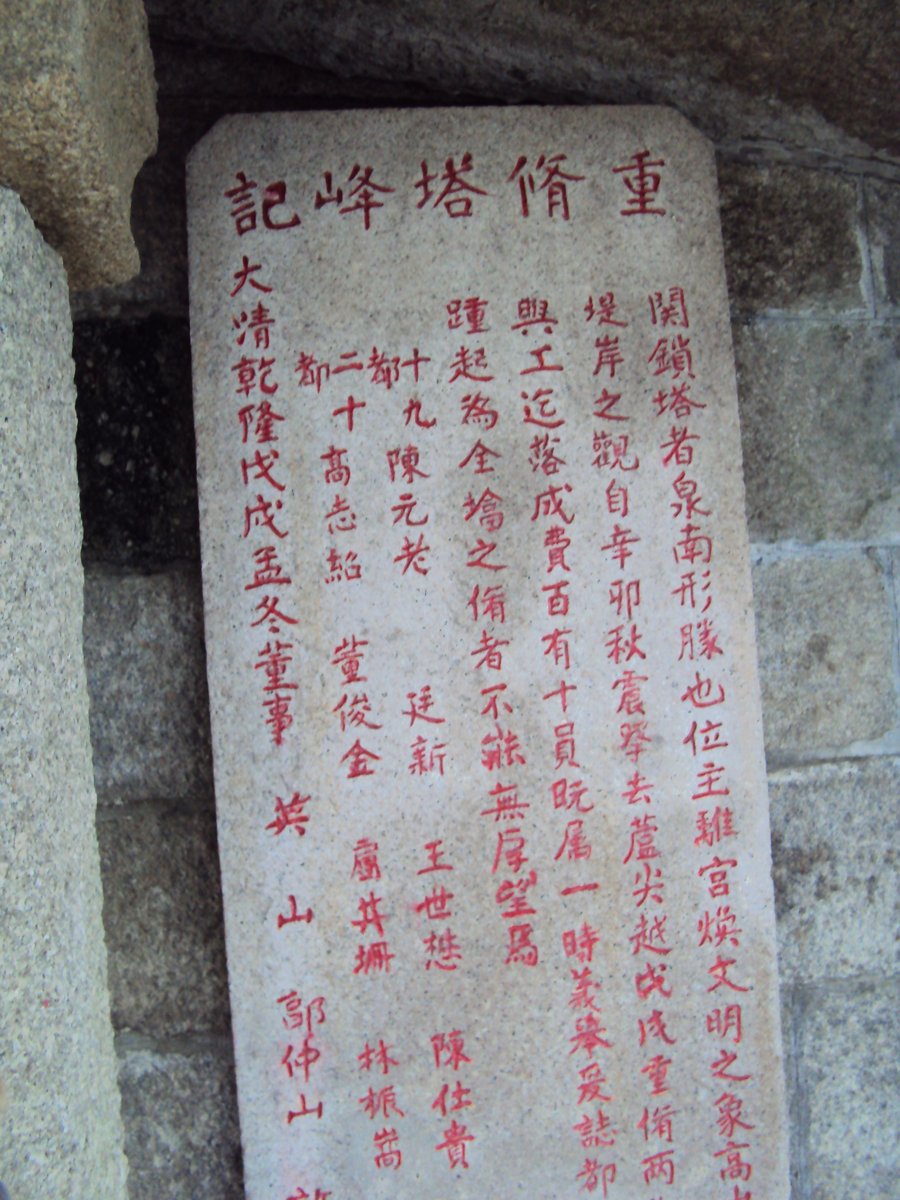 重脩塔峰記
関鎖塔者泉南形勝也位主離宮煥文明之象高
堤岸之觀自辛卯秋震擊去蘆尖越戊戌重脩两
興工迄落成費百有十員既属一時義舉爰誌都
踵起為全墖之脩者不能無厚望焉
十九都陳元老 廷新 王世懋 陳仕貴
二十都高志紹 董俊金 廬其珊 林振嵩
大清乾隆戊戌孟冬董事 英山 郭仲山